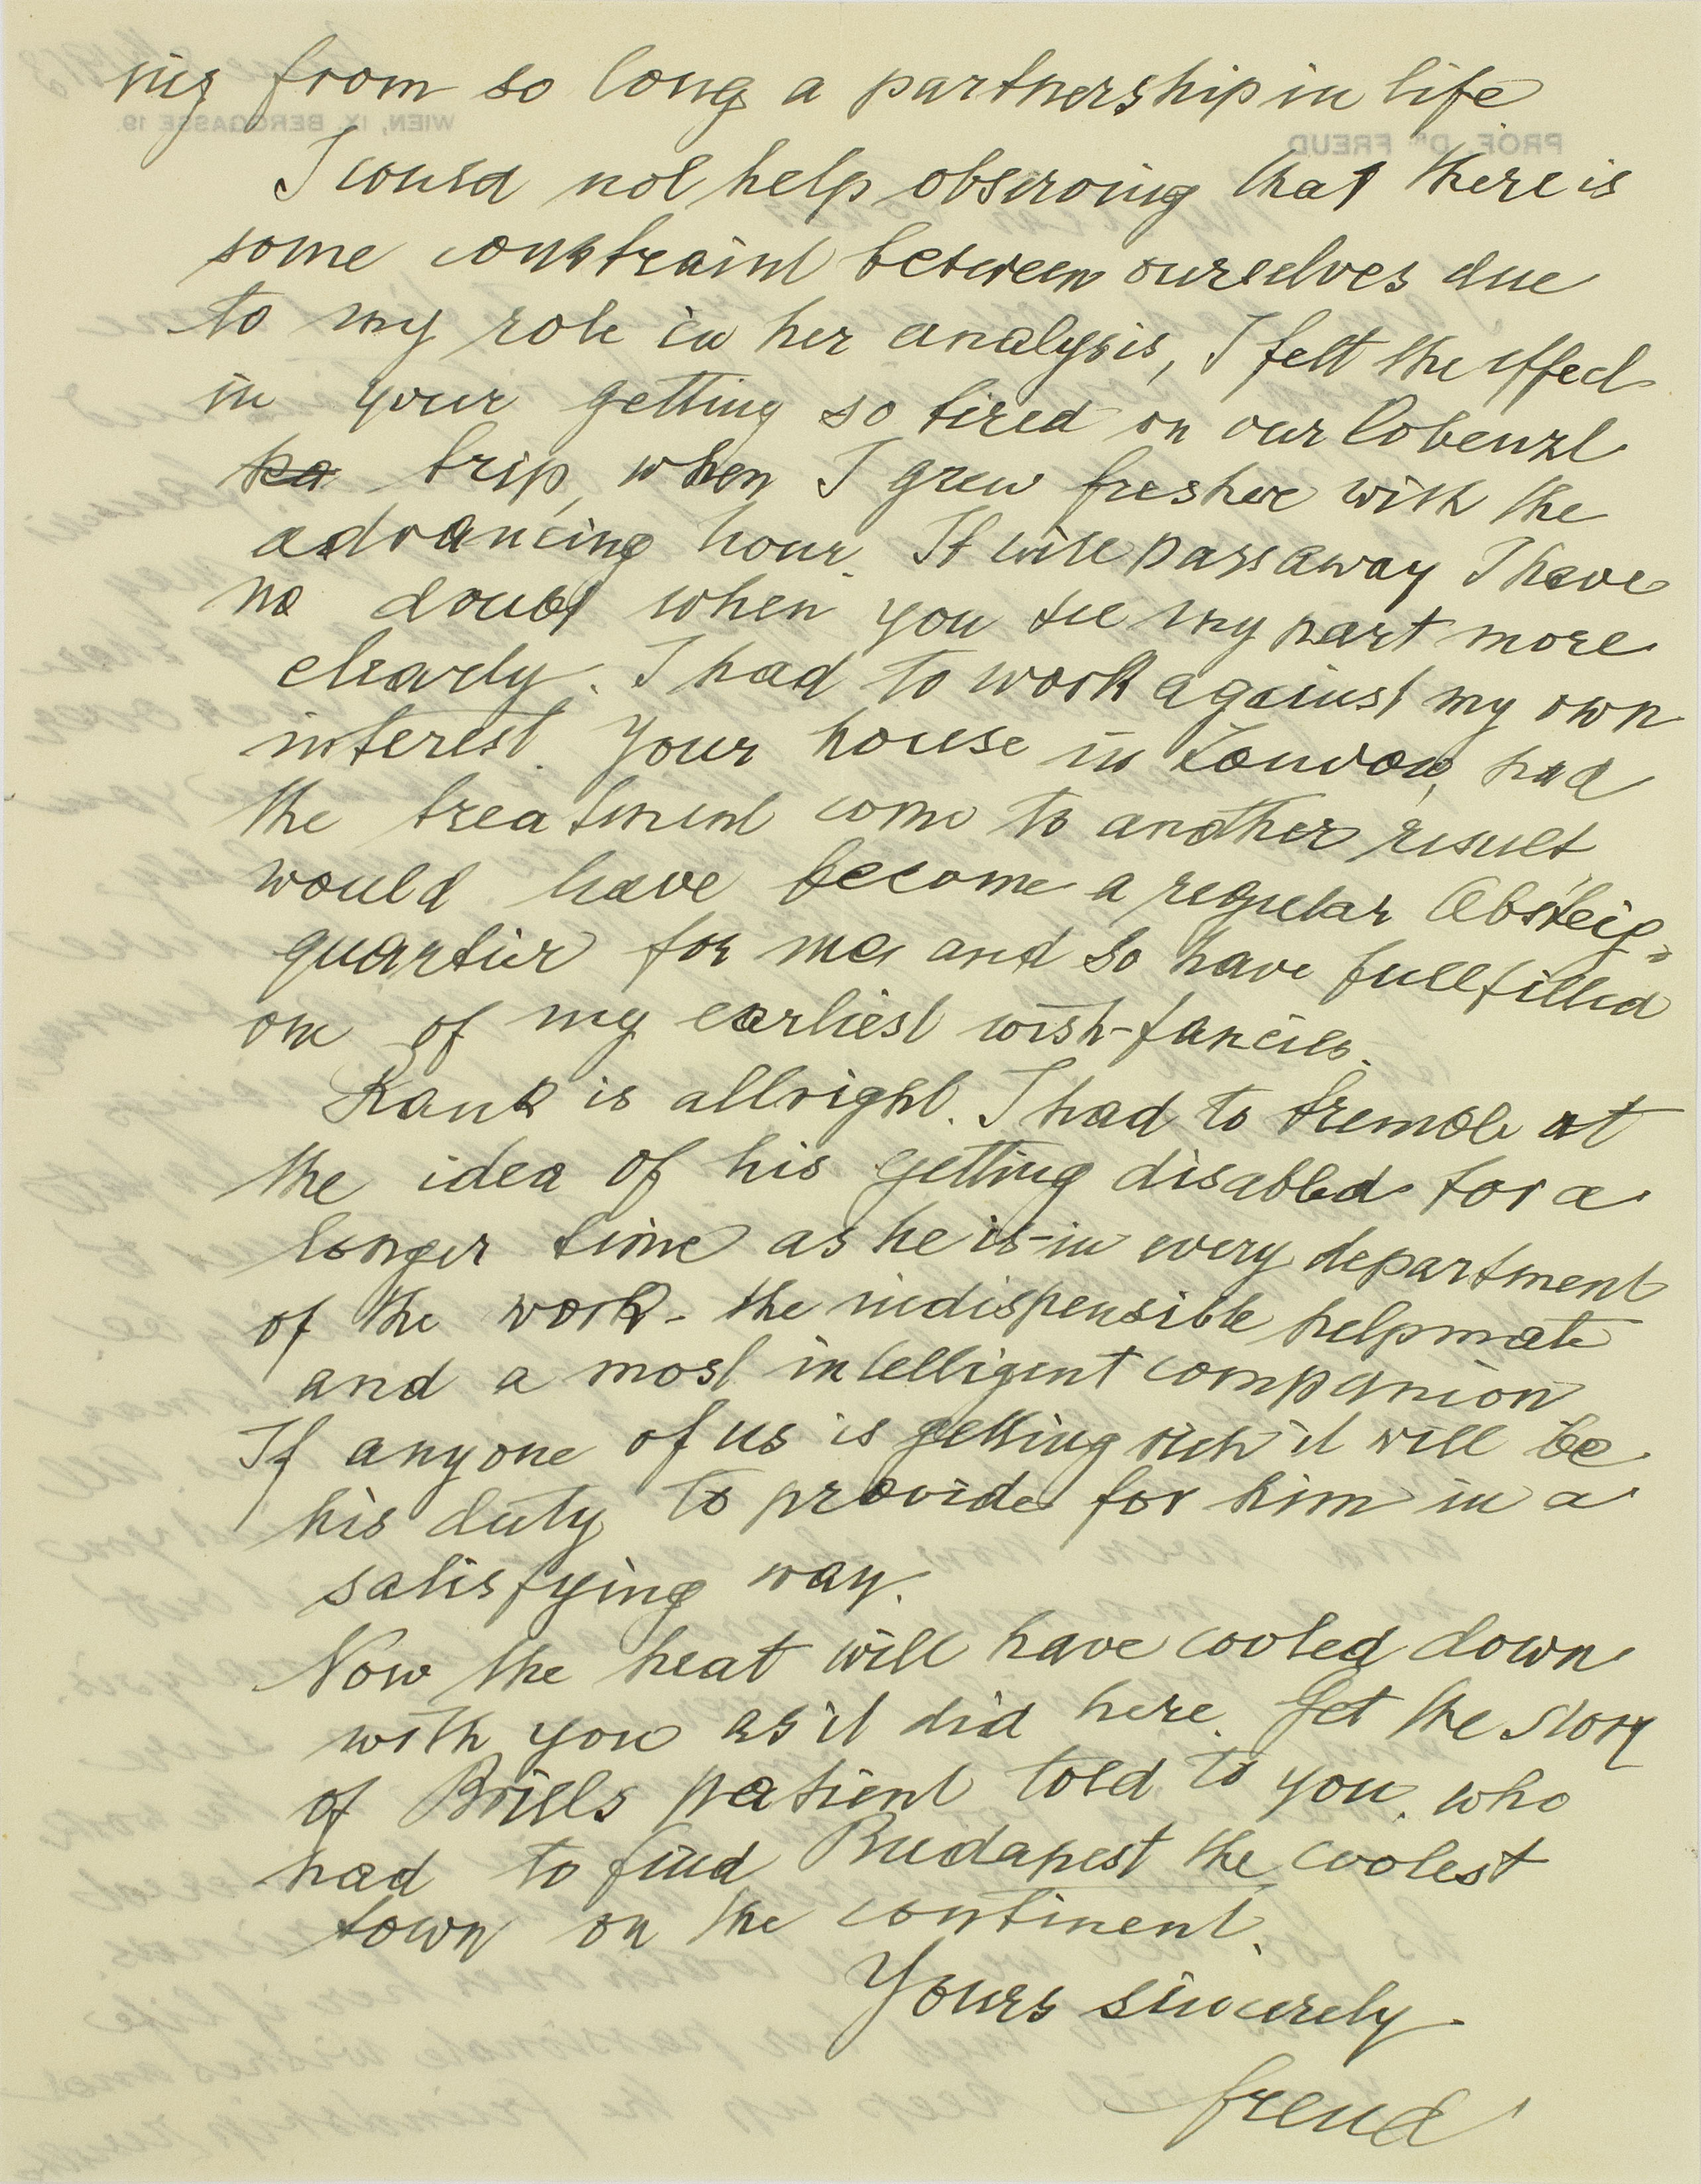 ing from so long a partnership in life.
I could not help observing that there is
some constraint between ourselves due
to my role in her analysis, I felt the effect
in your getting so tired on our Cobenzl
pa trip, when I grew fresher with the
advancing hour. It will pass away I have
no doubt when you see my part more
clearly. I had to work against my own
interest. Your house in London, had
the treatment come to another result
would have become a regular Absteig=
quartier for me and so have fullfilled
one of my earliest wish-fancies.
Rank is allright. I had to tremble at
the idea of his getting disabled for a
longer time as he is - in every department
of the work - the indispensible helpmate
and a most intelligent companion
If anyone of us is getting rich it will be
his duty to provide for him in a
satisfying way.
Now the heat will have cooled down
with you as it did here. Get the story
of Brills patient told to you, who
had to find Budapest the coolest
town on the continent.
Yours sincerely
Freud
PROF. DR FREUD
WIEN, IX. BERGGASSE 19.